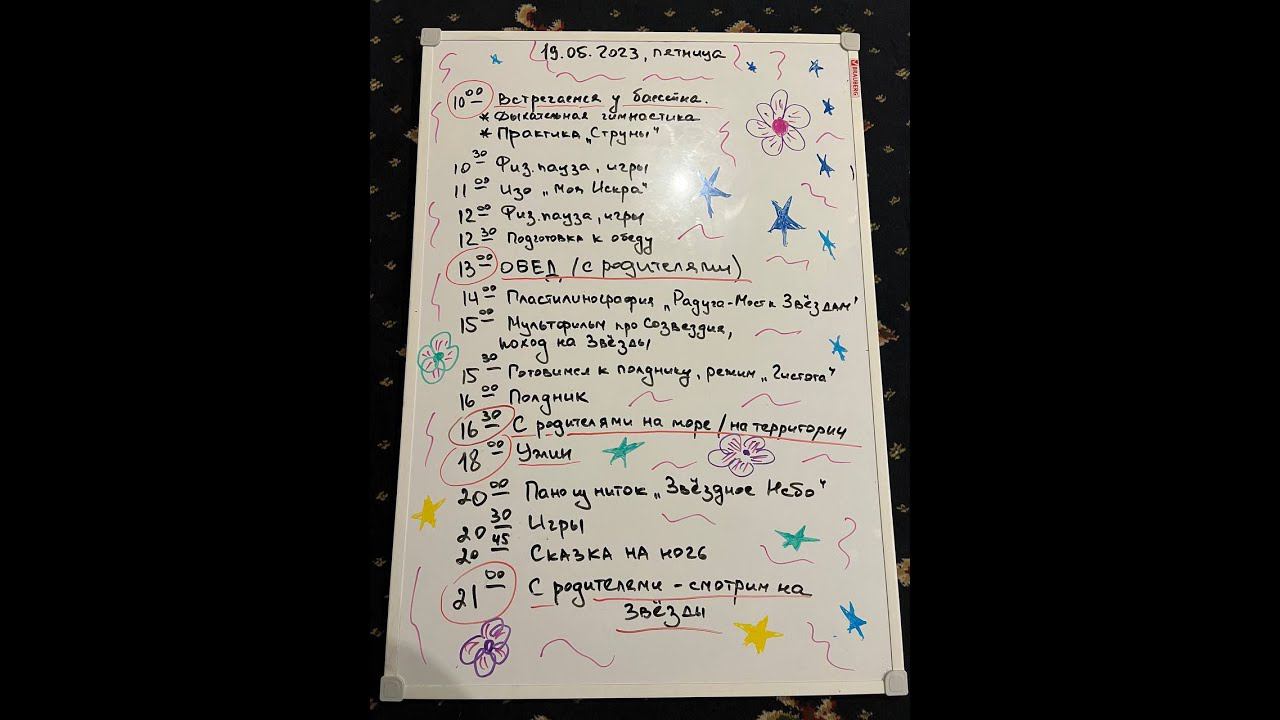 19.05.2023, пятница
BRAUBERG
10⁰⁰ Встречаемся у бассейна.
* Дыхательная гимнастика
* Практика „Струны"
10³⁰ Физ.пауза, игры
11⁰⁰ Изо „Моя Искра"
12⁰⁰ Физ.пауза, игры
12³⁰ Подготовка к обеду
13⁰⁰ ОБЕД (с родителями)
14⁰⁰ Пластилинография „Радуга-Мост к Звёздам"
15⁰⁰ Мультфильм про Созвездия,
поход на Звёзды
15³⁰ Готовимся к полднику, режим „Чистота"
16⁰⁰ Полдник
16³⁰ С родителями на море/на территории
18⁰⁰ Ужин
20⁰⁰ Пано из ниток „Звёздное Небо"
20³⁰ Игры
20⁴⁵ Сказка на ночь
21⁰⁰ С родителями - смотрим на
Звёзды